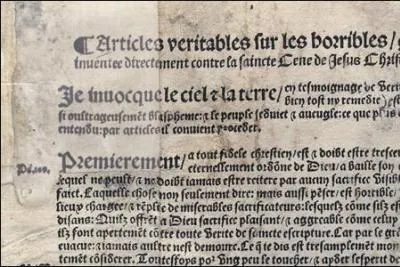 ¶Articles veritables sur les horribles/
inuentee directement contre la saincte Cene de Jesus Chri
Je inuocque le ciel & la terre/ en tesmoignage de Verit
bien tost ny remedie
si oultrageusemēt blaspheme: & le peuple seduict & aueugle: ce que plus
entendu: par articles il conuient proceder.
Premierement/ a tout fidele chrestien/ est & doibt estre
eternellement ordōne de Dieu/ a baille son
lequel ne peult/ & ne doibt iamais estre reitere par aucun sacrifice visib
faict. Laquelle chose non seulement dire: mais aussi pēser/ est horrible/
lieux chargee/ & rēplie de miserables sacrificateurs: lesquelz cōme s'ilz est
disans: Quilz offrēt a Dieu sacrifice plaisant/ & aggreable cōme celuy
ilz font apertement cōtre toute Verite de saincte escripture. Car par le grā
euacue: & iamais aultre nest demoure. Ce que ie dis est tresamplement mon
temēt cōsiderer. Toutesfoys po' ung peu le toucher/ et ayder lesperit de